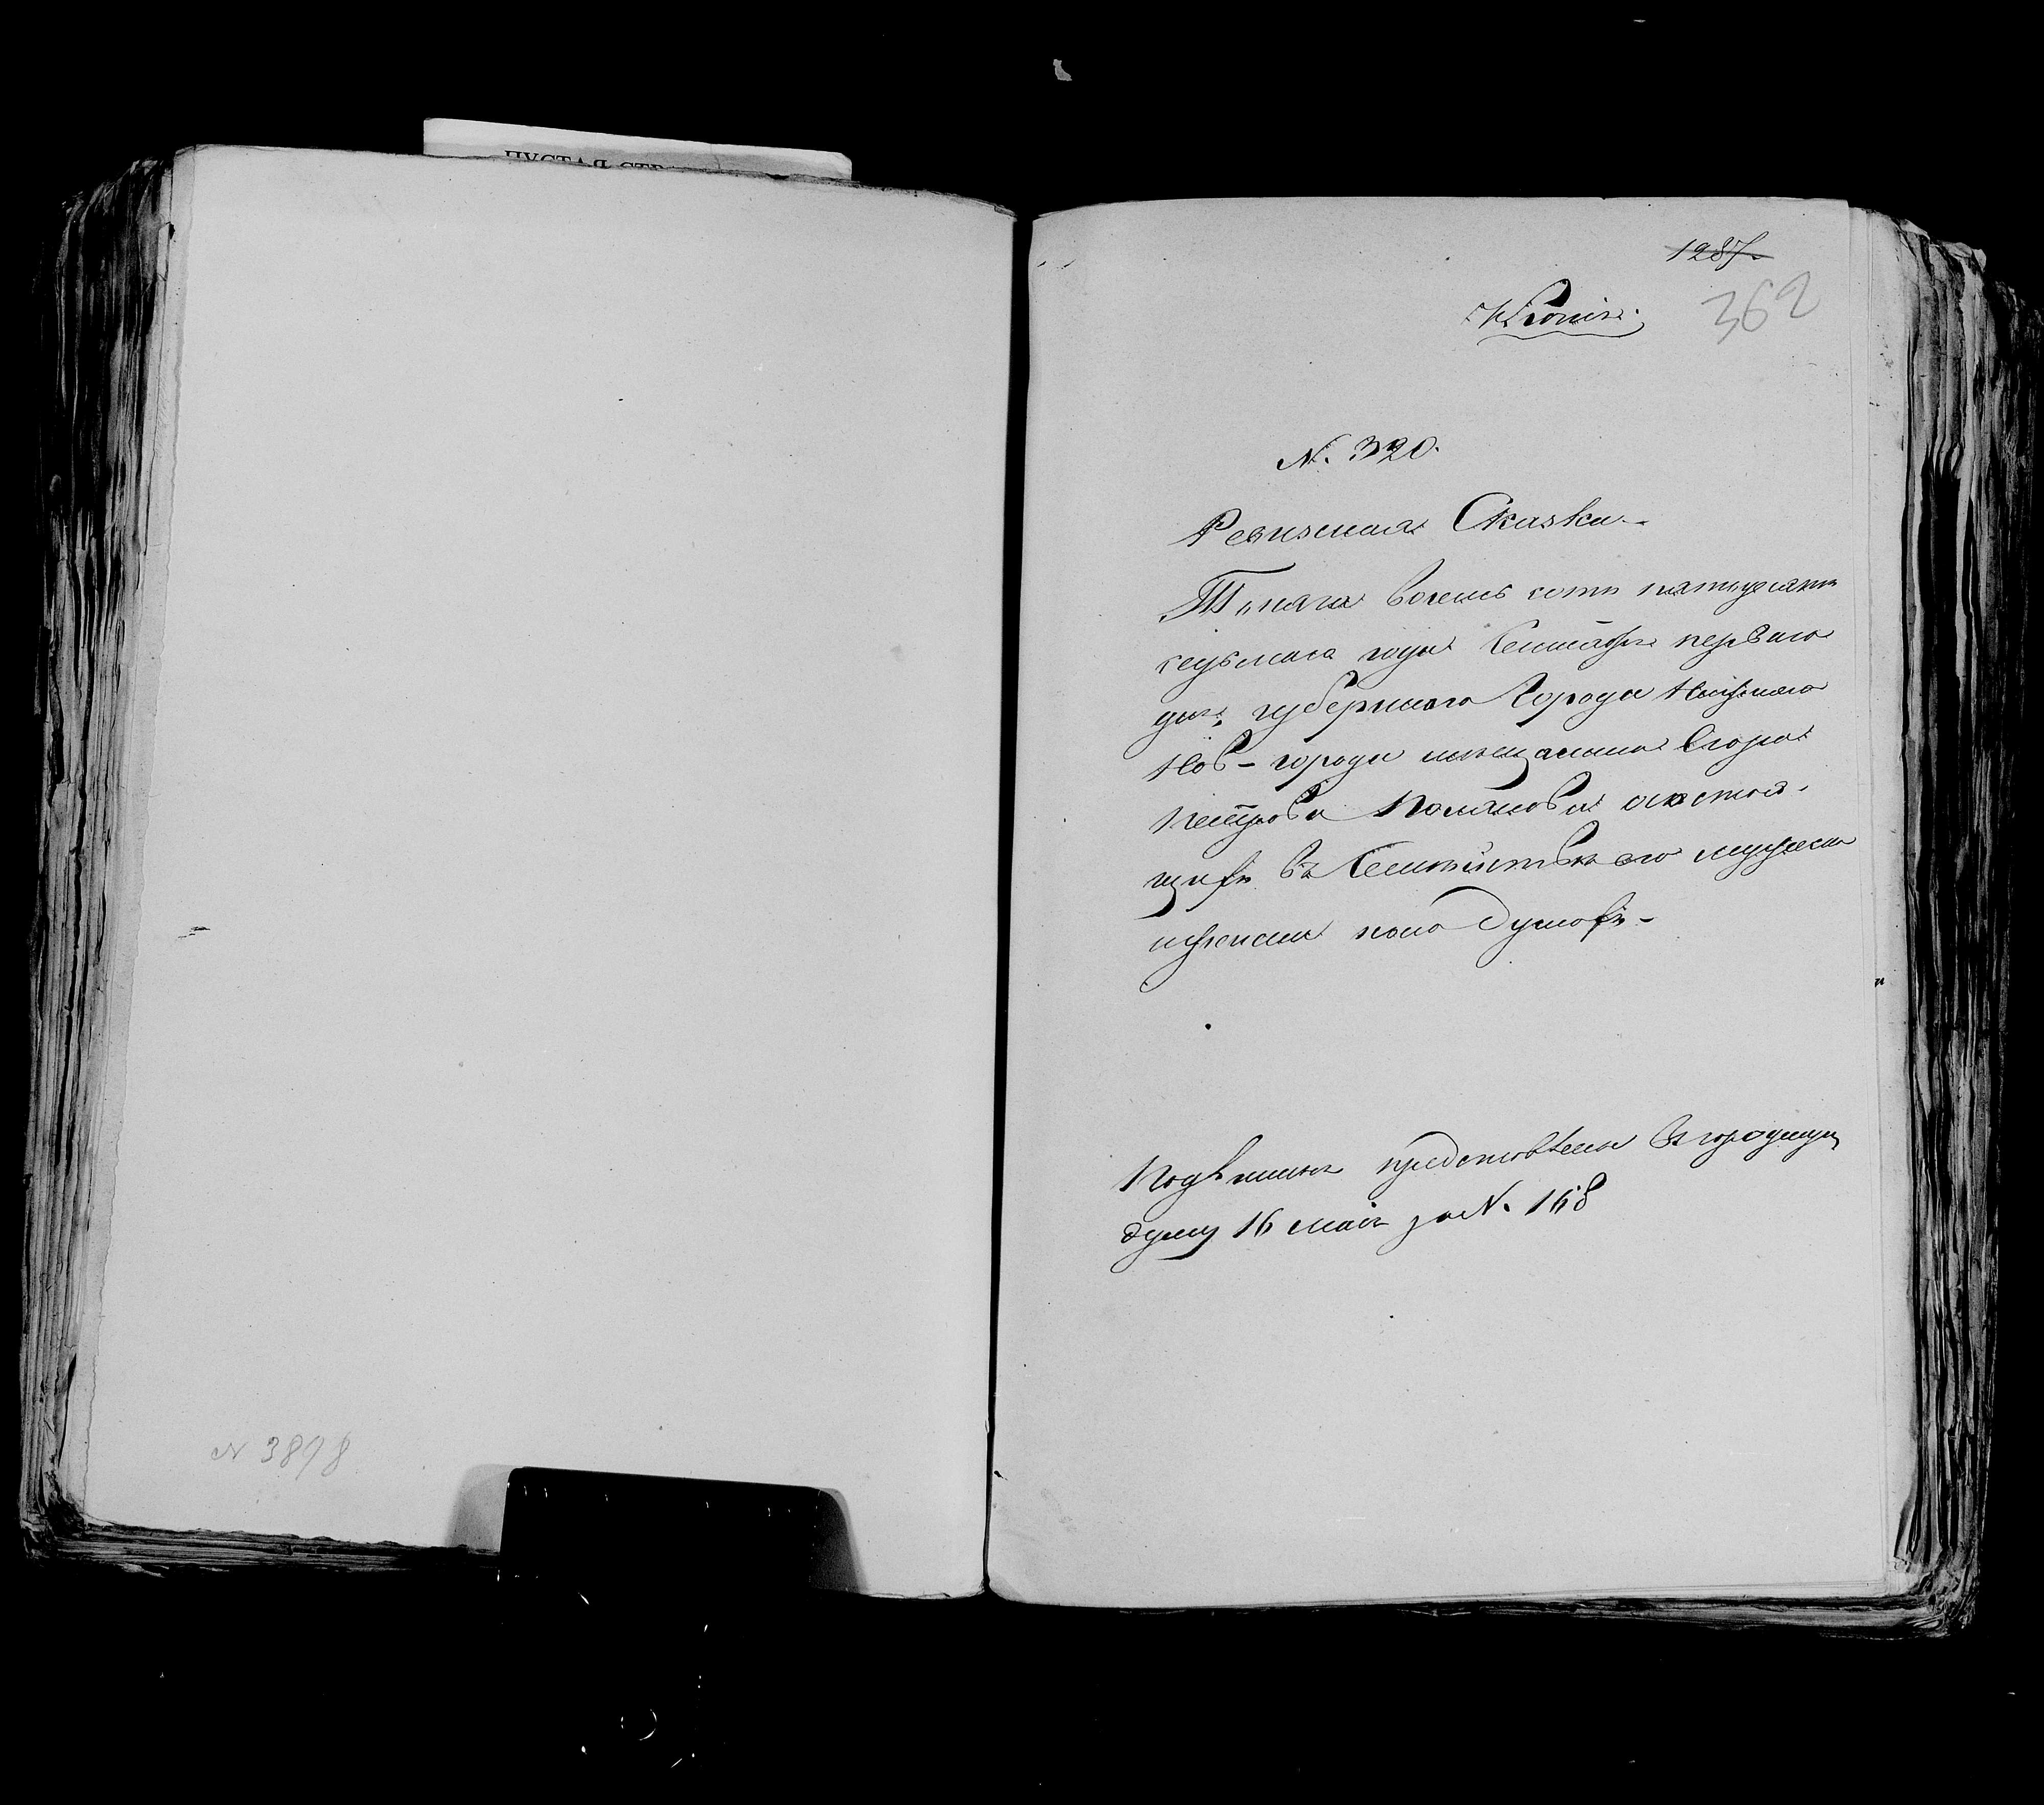 ПУСТАЯ СТР
1287.
Копія.
362
N. 320.
Ревизская Сказка.
Тысяча восемь сотъ пятьдесятъ
седьмаго года Сентября перваго
дня, губернскаго Города Нижняго
Нов-города мещанина Егора
Петрова состоя-
щаго въ Семействѣ его мужеска
и женска пола душахъ-
Подлинная представлена въ городскую
думу 16 мая за N. 168
N 3878